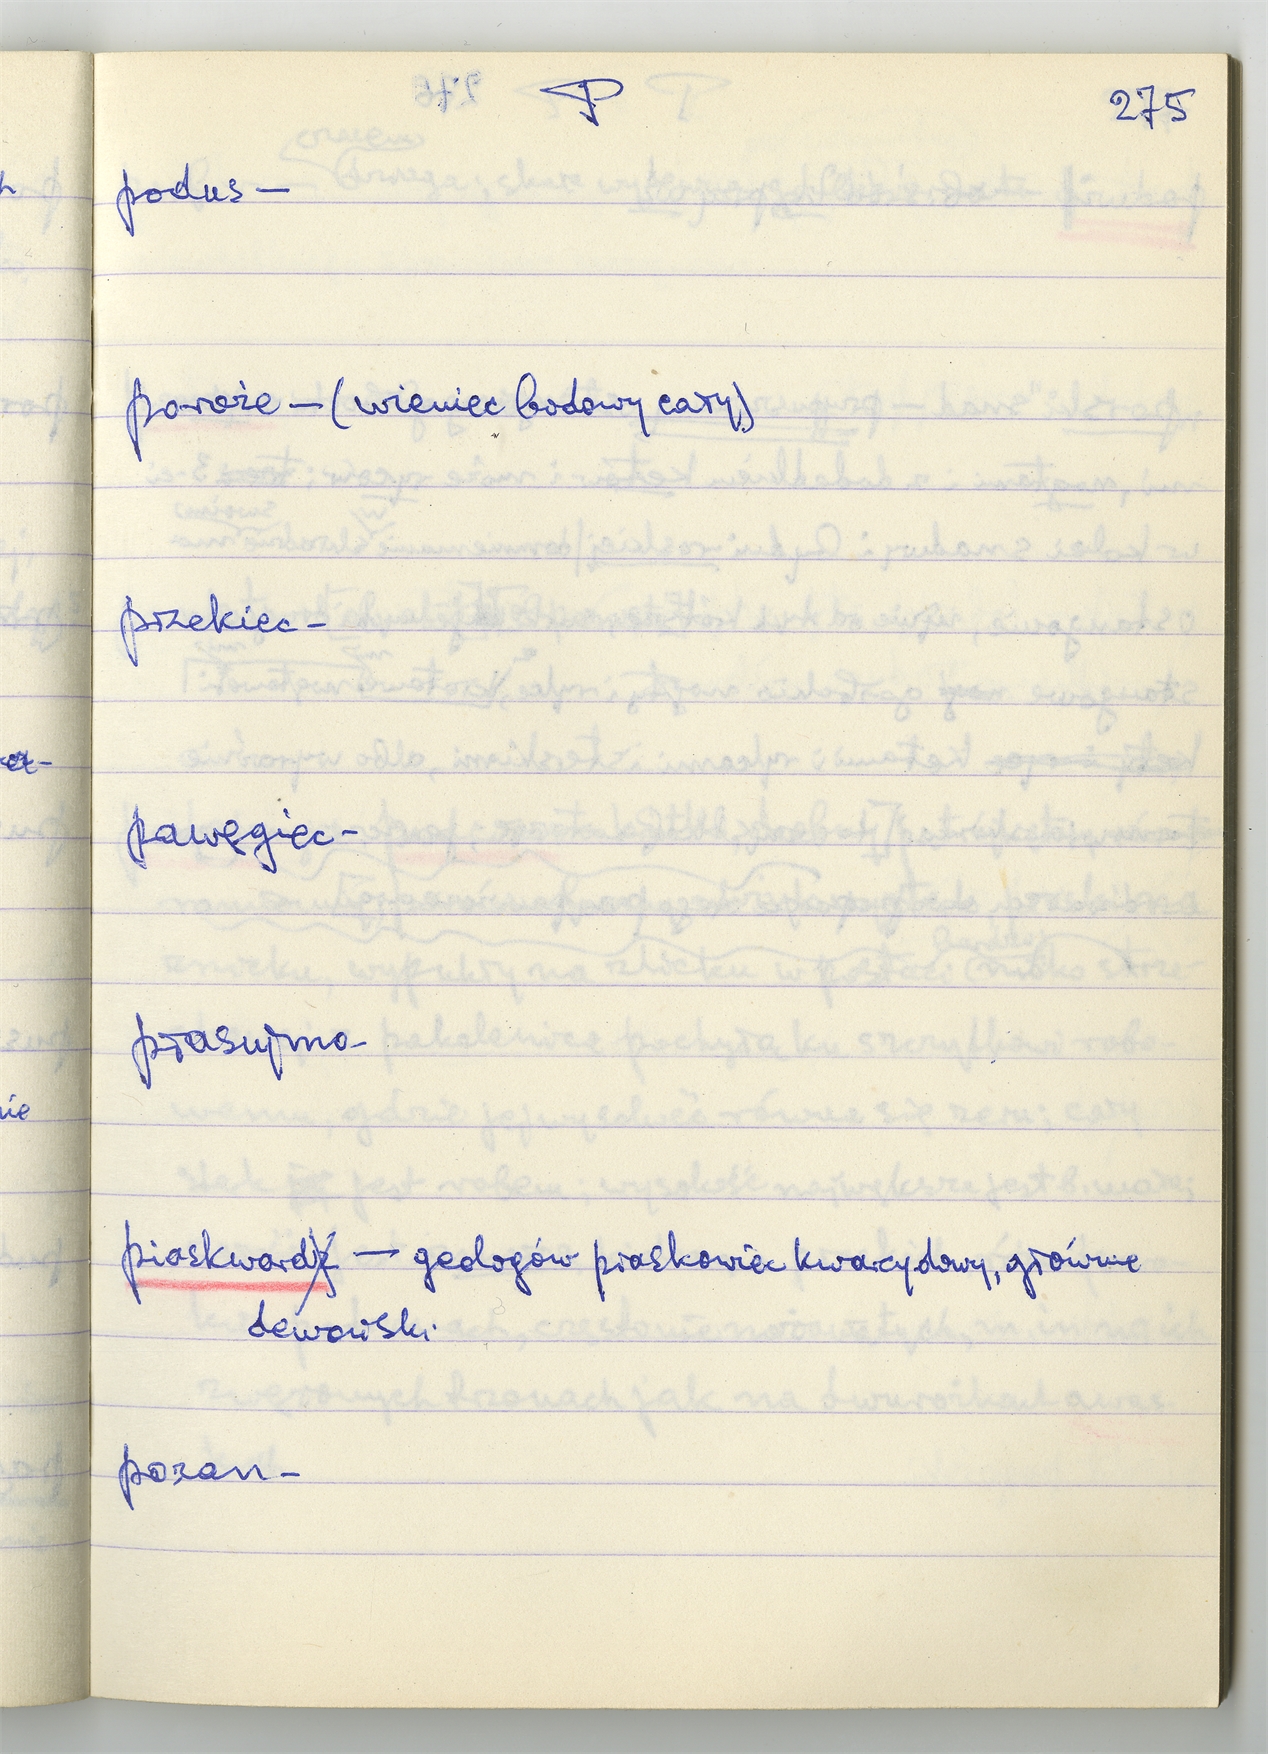 P 275
podus —
poroże — (wieniec bodowy cały)
przekiec —
pawęgiec —
płasujmo —
piaskwardź — geologów piaskowiec kwarcydowy, główne
dewoński.
pozan —